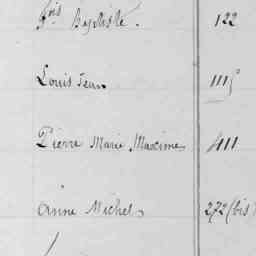 fois Baptiste. 122
Louis Jean 1115
Pierre Marie Maxime 411
Anne Michel 272 (bis)